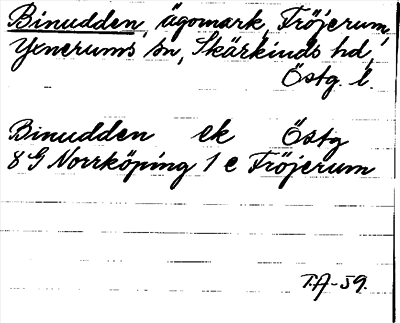 Binudden, ägomark, Fröjerum,
Yxnerums sn, Skärkinds hd,
Östg. l.
Binudden ek Östg
8 G Norrköping 1 e Fröjerum
T.A-59.